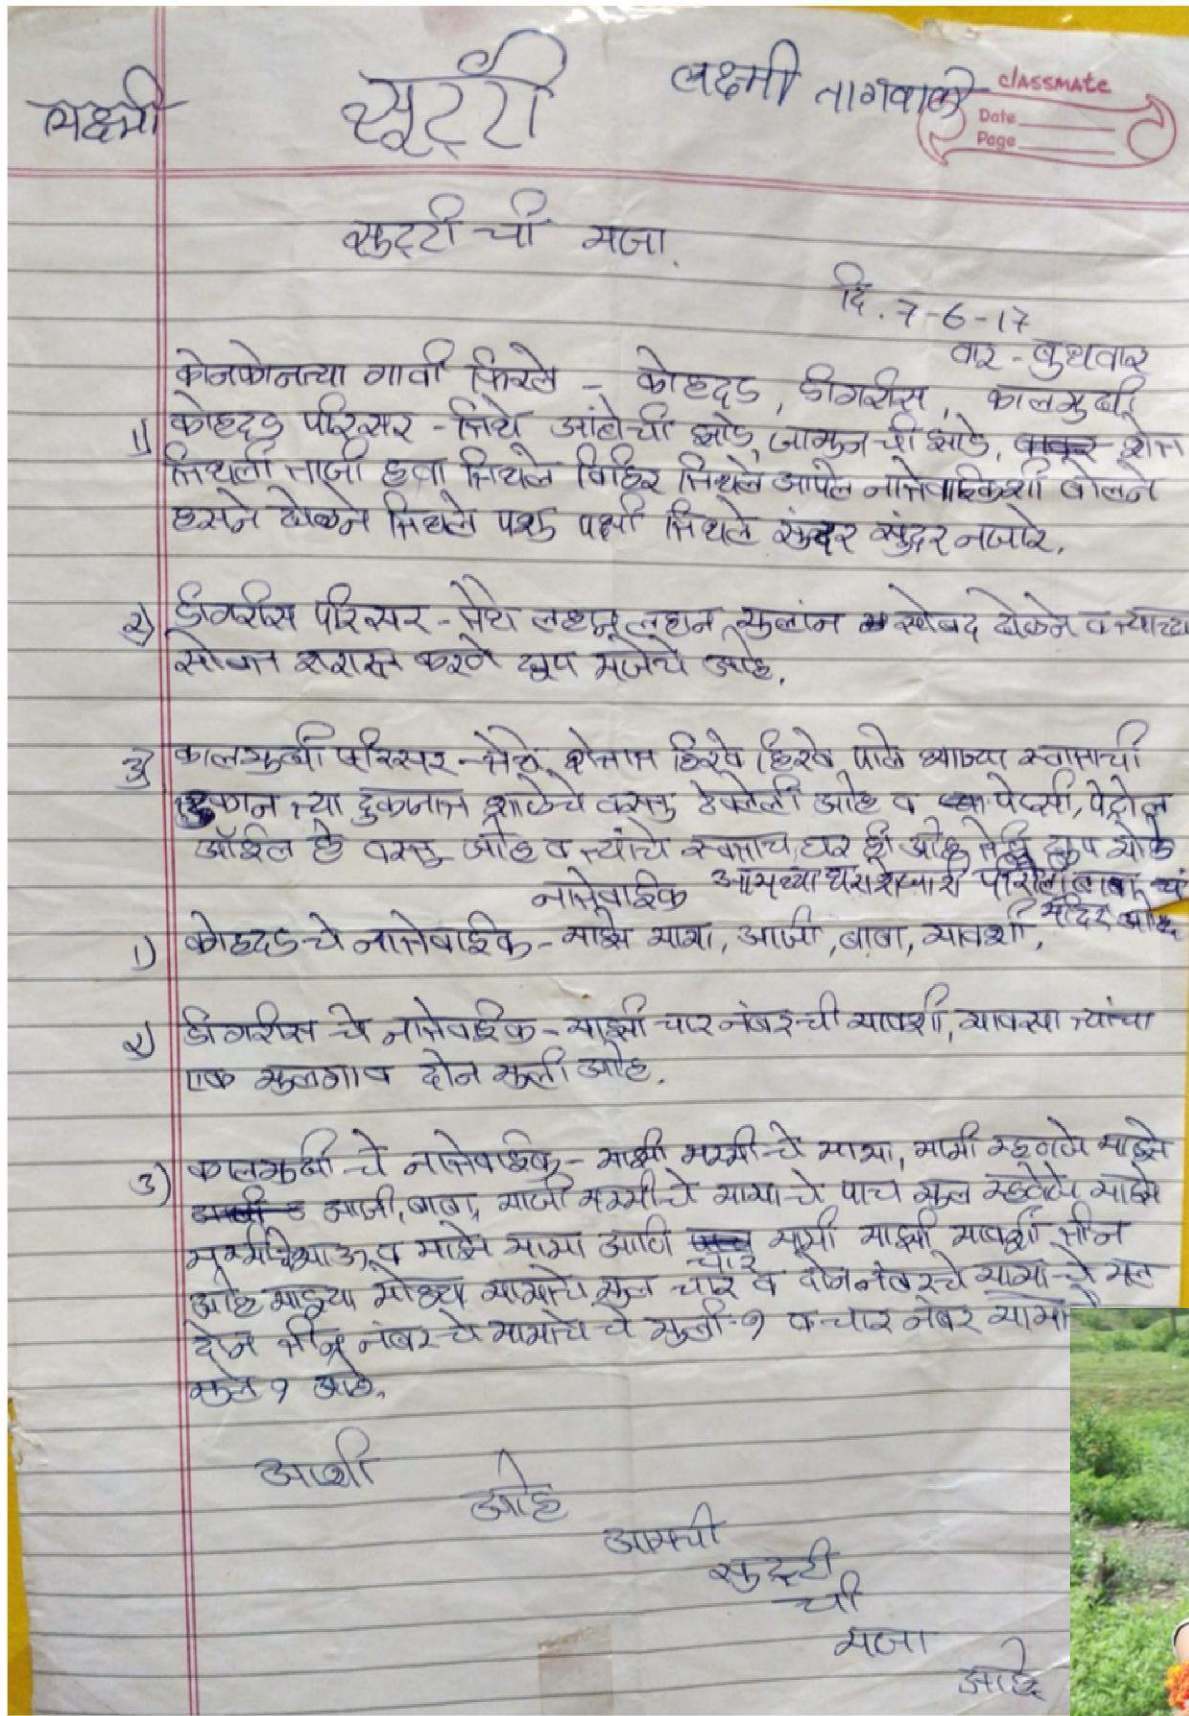 लक्ष्मी सूट्टी लक्ष्मी तागवाले
classmate
Date
Page
सुट्टी ची मजा.
दि. 7-6-17
वार - बुधवार
कोनकोनत्या गावी फिरले - कोहदड, डीगरीस, कालमुर्खी
1) कोहदड परिसर - तिथे आंबेची झाडे, जामुन ची झाडे, शेत
तिथली ताजी हवा तिथले विहिर तिथले आपले नातेवाईकशी बोलने
हसने खेळने तिथले पशु पक्षी तिथले सुंदर सुंदर नजारे.
२) डीगरीस परिसर - तेथे लहान लहान मुलांन सोबद खेळने व त्याच्या
सोबत शरास्त करने खूप मजेचे आहे.
3) कालमुर्खी परिसर - तेथे शेतात हिरवे हिरवे पाले स्वाताची
दुकान त्या दुकानात शाळेचे वस्तु ठेवलेली आहे व पेप्सी, पेट्रोल
ऑईल हे वस्तु आहे व त्यांचे स्वताच घर ही आहे तेही खुप मोठे
नातेवाईक आमच्या घराशेजारी बाबा चं
मंदिर आहे
1) कोहदडचे नातेवाईक - माझे मामा, आजी, बाबा, मावशी,
२) डीगरीस चे नातेवाईक - माझी चार नंबरची मावशी, मावसा त्यांचा
एक मुलगा व दोन मुली आहे.
3) कालमुर्खी चे नातेवाईक - माझी मम्मीचे मामा, मामी म्हणजे माझे
आजी, बाबा, माजी मम्मीचे मामाचे पाच मुल म्हणजे माझे
मम्मीचे भाऊ व माझे मामा आणि मामी माझी मावशी तीन
चार
आहे माझ्या मोठ्या मामाचे मुल चार व दोन नंबरचे मामाचे मुल
दोन तीन नंबर चे मामाचे चे मुली-१ व चार नंबर मामा
मुले १ आहे.
आशी
आहे
आमची
सुट्टी
ची
मजा
आहे